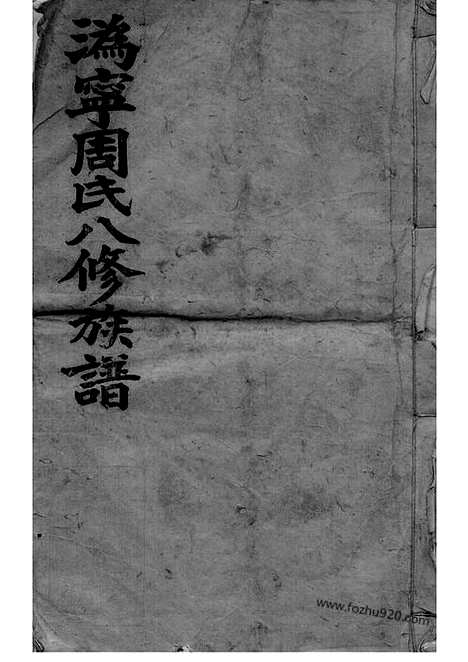 溈寧周氏八修族譜
www.fozhu920.com